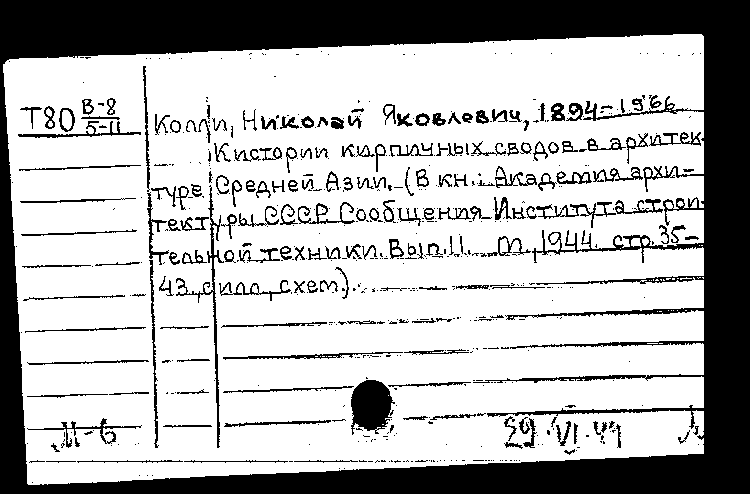 Т80 В-8
5-11
Колли, Николай Яковлевич, 1894-1966
К истории кирпичных сводов в архитек-
туре Средней Азии. (В кн.: Академия архи-
тектуры СССР. Сообщения Института строи-
тельной техники. Вып. 11. М., 1944. стр. 35-
43, с илл., схем).
М-6
29.VI.49